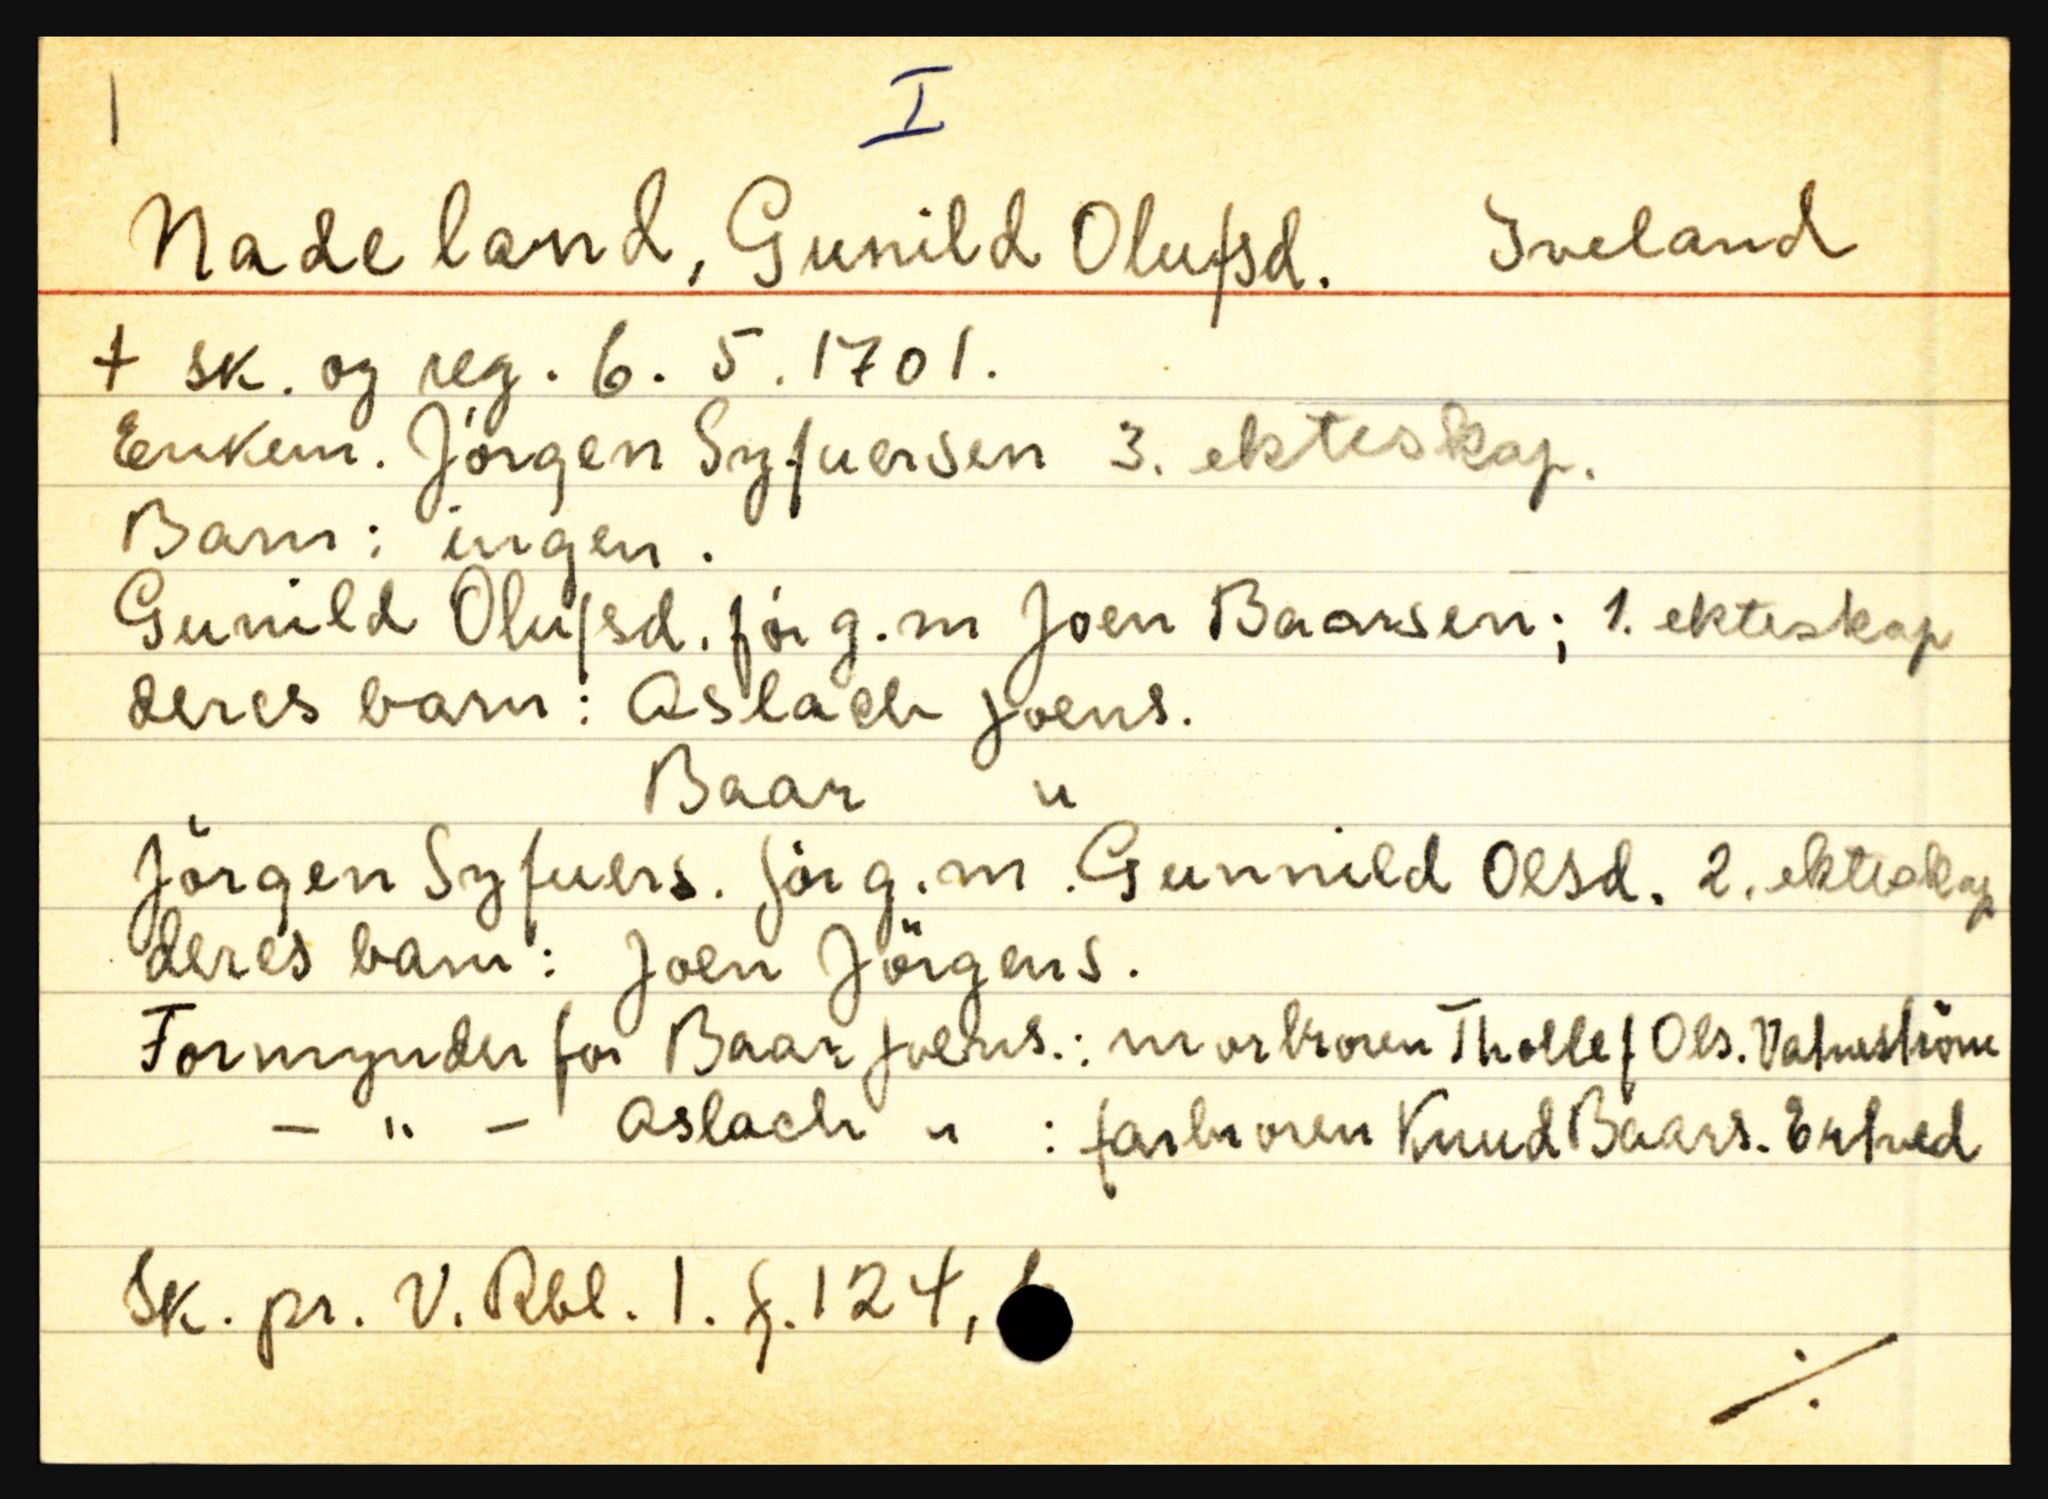 1
I
Nadeland, Gunild Olufsd. Iveland
+ sk. og reg. 6. 5. 1701.
Enkem. Jörgen Syfuersen 3. ekteskap.
Barn: ingen.
Gunild Olufsd. för g.m Joen Baarsen; 1. ekteskap
deres barn: Aslach Joens.
Baar "
Jörgen Syfuers. för g.m. Gunnild Olsd. 2. ekteskap
deres barn: Joen Jörgens.
Formynder for Baar Joens.: morbroren Thollef Ols. Vatneström
- " - Aslach " : farbroren Knud Baars. Ertved
Sk. pr. V. Rbl. 1. f. 124,
./.